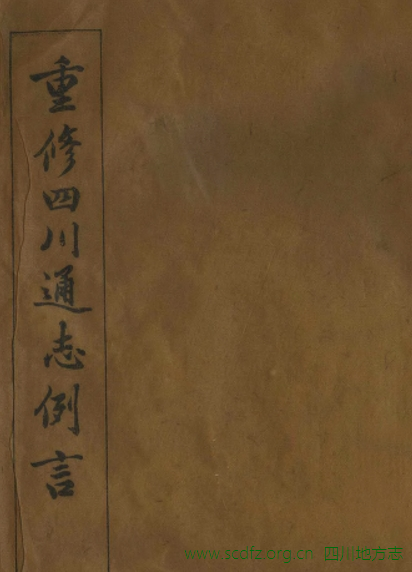 重修四川通志例言
www.scdfz.org.cn 四川地方志